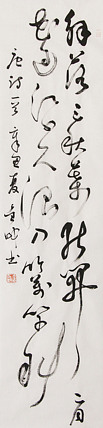 解落三秋葉能開二月
花過江千尺浪入竹萬竿斜
唐詩一首辛丑夏書